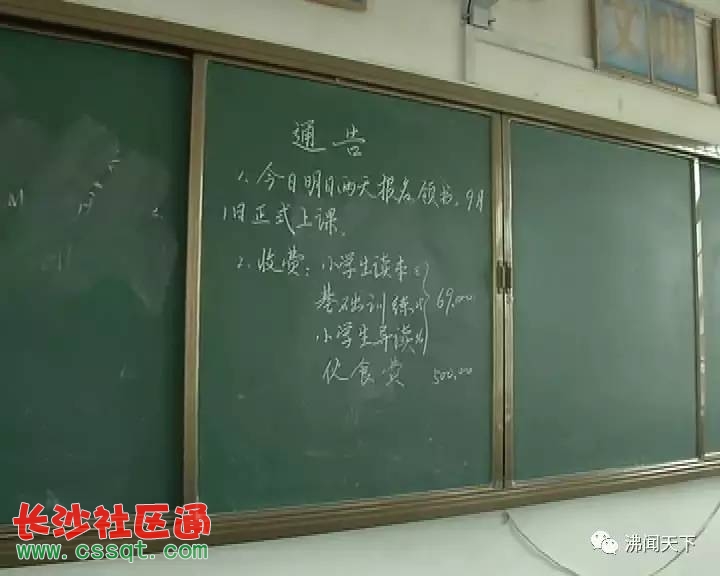 文明
通告
1、今日明日两天报名领书，9月
1日正式上课。
2、收费：小学生读本
基础训练 69.00
小学生导读
伙食费 500.00
M
长沙社区通
www.cssqt.com
沸闻天下